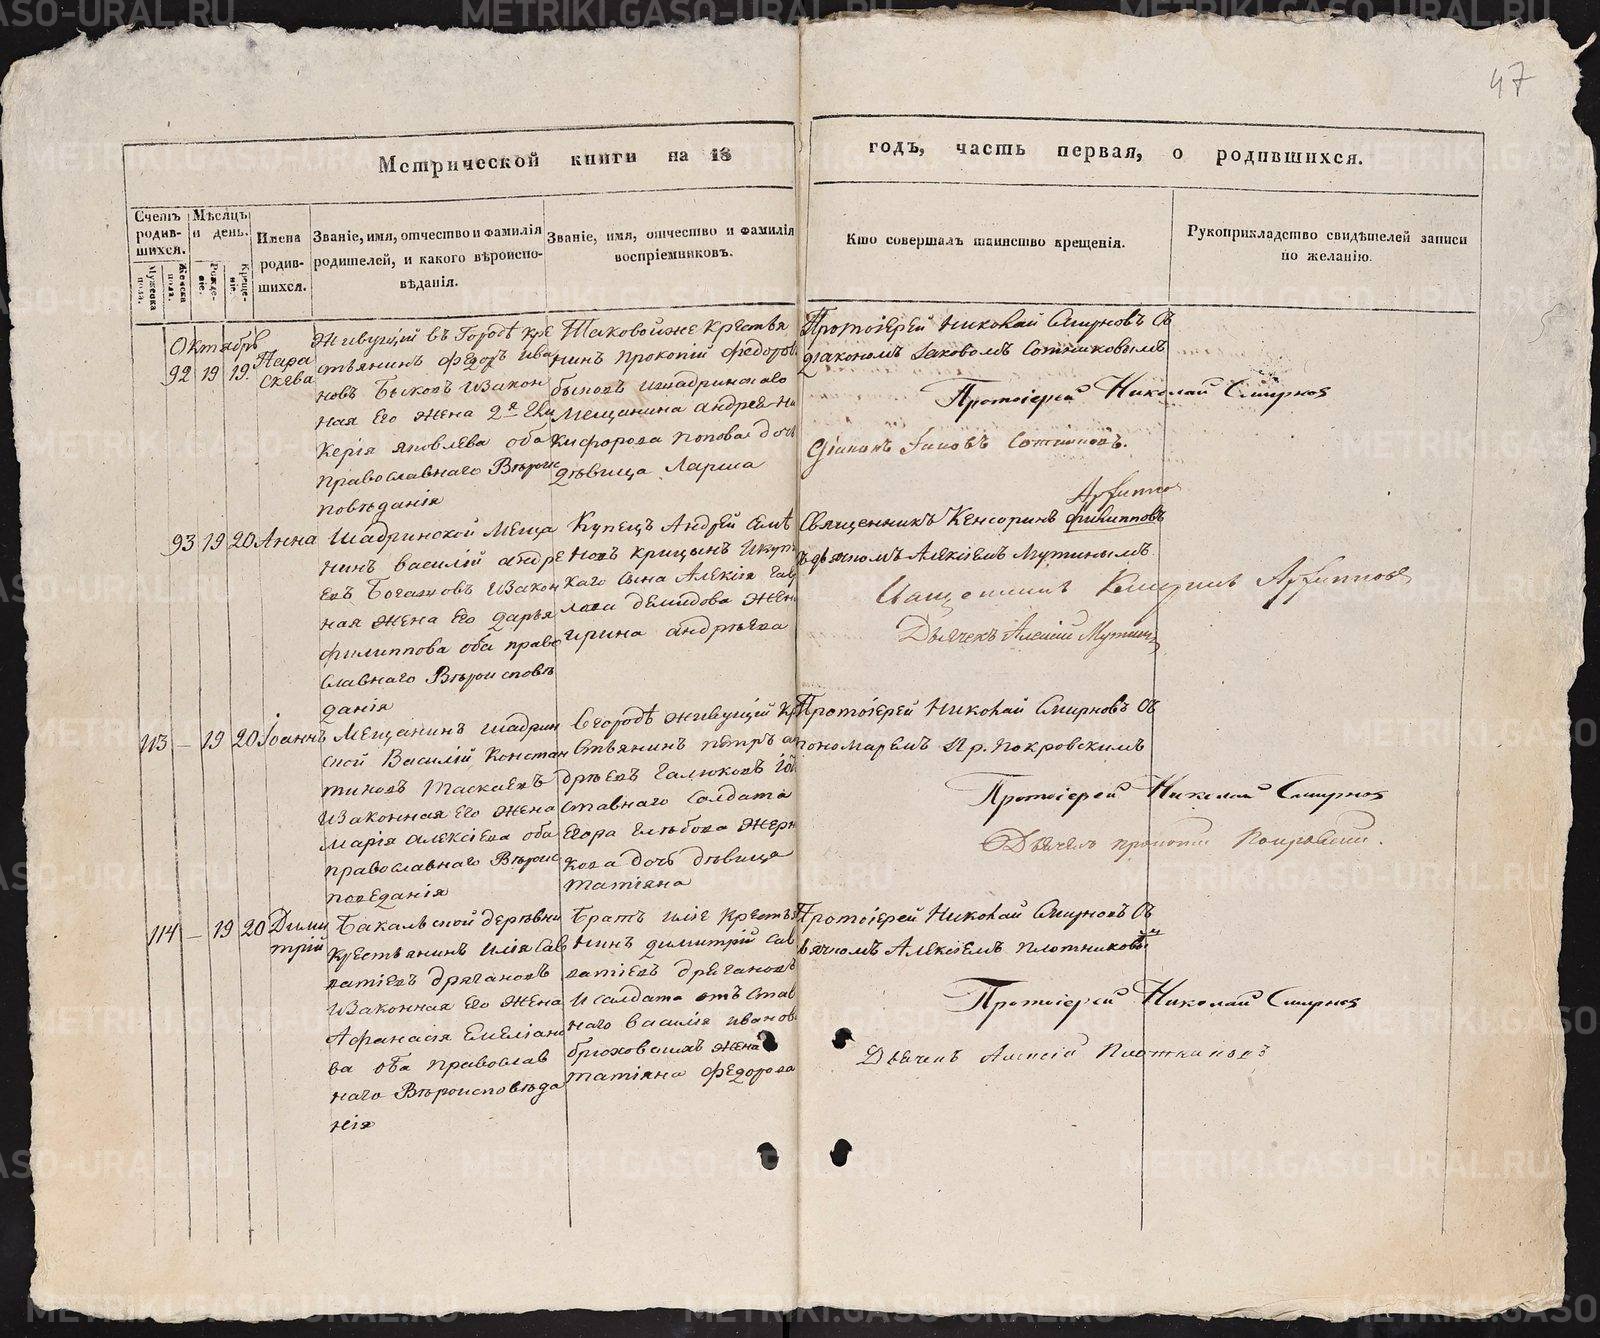 47
Метрической книги на 18
годъ, часть первая, о родившихся.
Счетъ родив- шихся.
Мужеска пола.
Женска пола.
Мѣсяцъ и день.
Рожде- ніе.
Креще- ніе.
Имена родив- шихся.
Званіе, имя, отчество и фамилія
родителей, и какого вѣроиспо-
вѣданія.
Званіе, имя, отчество и фамилія
воспріемниковъ.
Кто совершалъ таинство крещенія.
Рукоприкладство свидѣтелей записи
по желанію.
Октябрь
92 19 19. Пара
скева
Живущій въ Городѣ кре
стьянинъ Федоръ Ива
новъ Быковъ изакон
ная Его жена 2я
керія Яковлева оба
православнаго Вѣроис
повѣданія
Таковойже крестья
нинъ Прокопій Федоров
быковъ ишадринскаго
Мещанина андрея Ни
кифорова попова дочь
дѣвица Лариса
Протоіерей Николай Смирновъ Съ
діакономъ Іаковомъ Сотниковымъ
Протоіерей Николай Смирнов
Діаконъ Іаковъ Сотниковъ.
93 19 20 Анна
Шадринской Меща
нинъ василій андре
евъ Богатовъ изакон
ная жена Его дарья
филиппова оба право
славнаго Вѣроисповѣ
данія
Купецъ Андрей Семѣ
новъ
каго сына Алексія Гав
лова демидова жен
ирина андрѣева
Священникъ Кенсоринъ филипповъ
Архиппов
дьячкомъ Алексіемъ Мутинымъ
Священникъ Кенсоринъ Архиппов
Дьячекъ Алексій Мутинъ
113 — 19 20 Іоаннъ
Мещанинъ шадрин
ской Василій Констан
тиновъ Таскаевъ
изаконная Его жена
марія алексіева оба
православнаго Вѣроис
поведанія
Вгородѣ живущій кр
стьянинъ петръ ан
дрѣевъ Галюковъ
ставнаго Солдата
Егора Глѣбова жерн
кова дочь дѣвица
татіяна
Протоіерей Николай Смирновъ Съ
пономаремъ Пр. Покровскимъ
Протоіерей Николай Смирнов
Дьячекъ Покровскій.
114 — 19 20 Дими
трій
Бакальской деревни
крестьянинъ Илія Сав
ватіевъ дрягановъ
изаконная Его жена
Афанасія Емеліано
ва оба православ
наго Вѣроисповѣда
нія
Братъ иліе крестья
нинъ димитрій Сав
ватіевъ дрягановъ
и солдата отъ став
наго василія иванов
брюховскихъ жена
татіяна Федорова
Протоіерей Николай Смирновъ Съ
дьячкомъ Алексіемъ Плотниковымъ
Протоіерей Николай Смирнов
Дьячекъ Алексій Плотниковъ